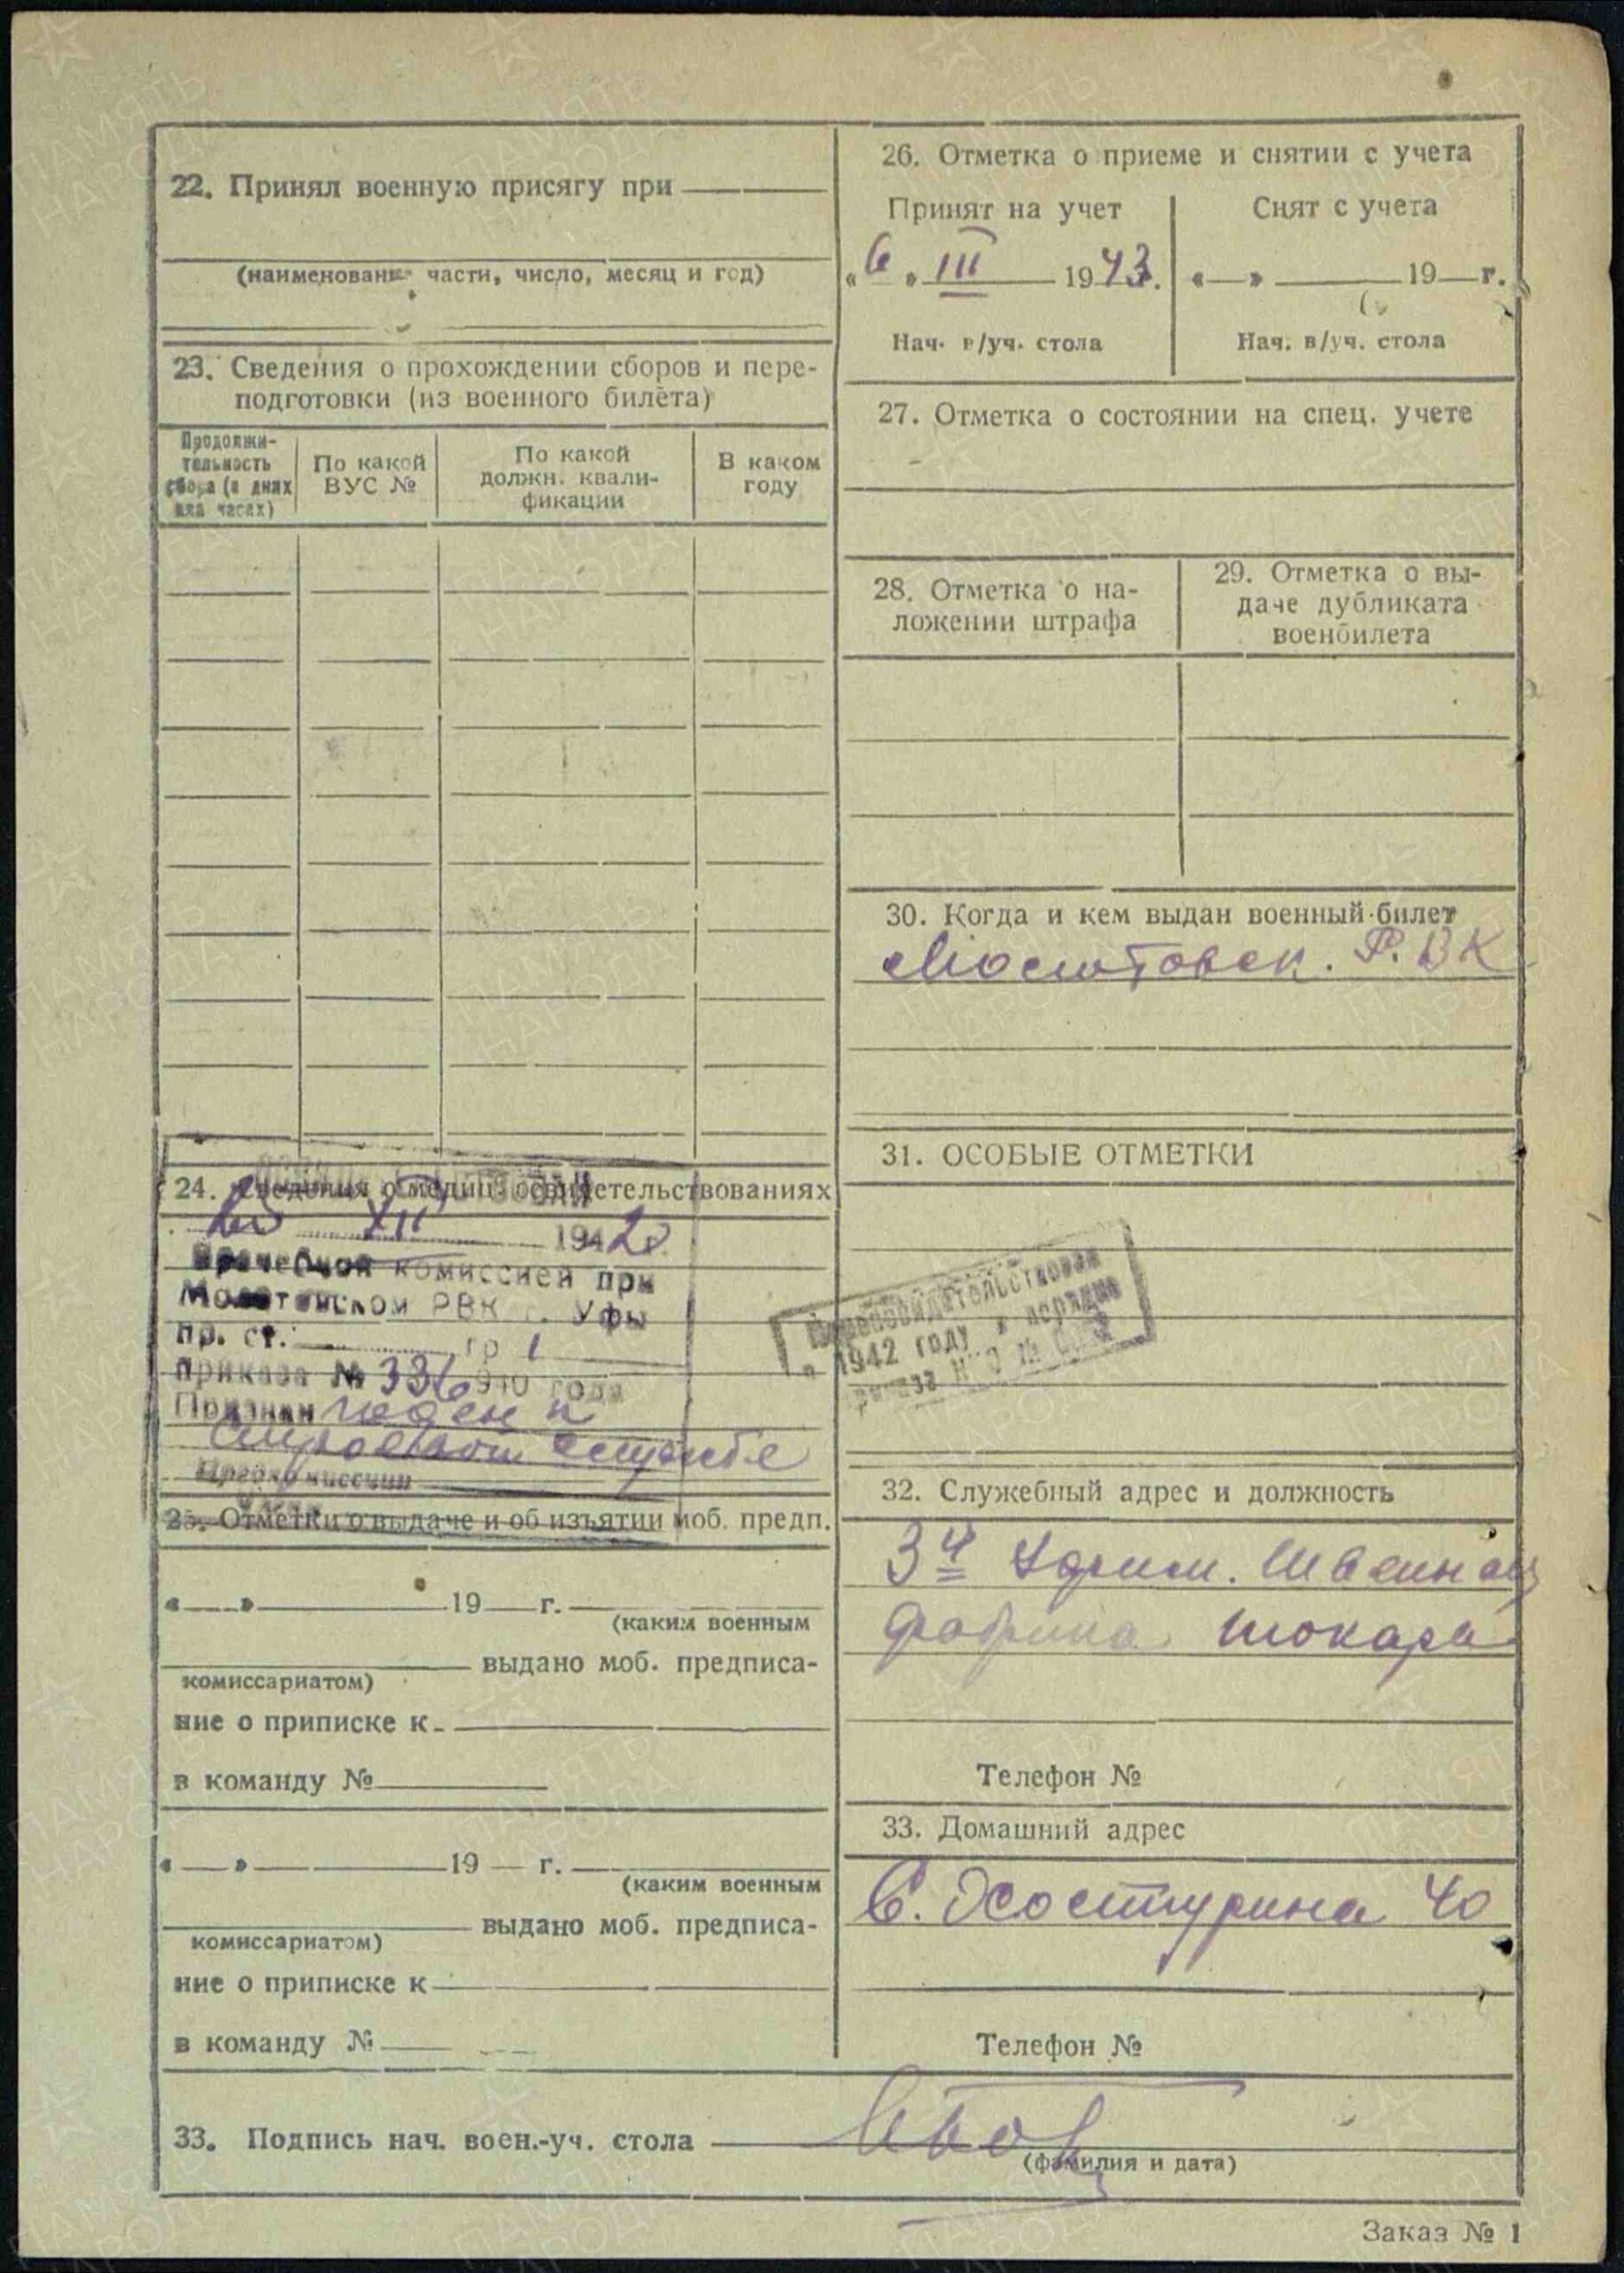 22. Принял военную присягу при
(наименование части, число, месяц и год)
23. Сведения о прохождении сборов и пере-
подготовки (из военного билета)
Продолжи-
тельность
сбора (в днях
или часах)
По какой
ВУС №
По какой
должн. квали-
фикации
В каком
году
24. Сведения о медиц. освидетельствованиях
XII 1942
Врачебной комиссией при
Молотовском РВК г. Уфы
пр. ст. гр 1
приказа № 336 940 года
Признан годен к
строевой службе
25. Отметки о выдаче и об изъятии моб. предп.
« » 19 г.
(каким военным
комиссариатом) выдано моб. предписа-
ние о приписке к
в команду №
« » 19 г.
(каким военным
комиссариатом) выдано моб. предписа-
ние о приписке к
в команду №
26. Отметка о приеме и снятии с учета
Принят на учет
« 6 » III 1943.
Нач. в/уч. стола
Снят с учета
« » 19 г.
Нач. в/уч. стола
27. Отметка о состоянии на спец. учете
28. Отметка о на-
ложении штрафа
29. Отметка о вы-
даче дубликата
военбилета
30. Когда и кем выдан военный билет
Р.ВК
31. ОСОБЫЕ ОТМЕТКИ
Переосвидетельствован
в 1942 году в порядке
приказа НКО №
32. Служебный адрес и должность
Швейная
фабрика токарь
Телефон №
33. Домашний адрес
С. Халтурина 40
Телефон №
33. Подпись нач. воен.-уч. стола
(фамилия и дата)
Заказ № 1
ПАМЯТЬ
НАРОДА